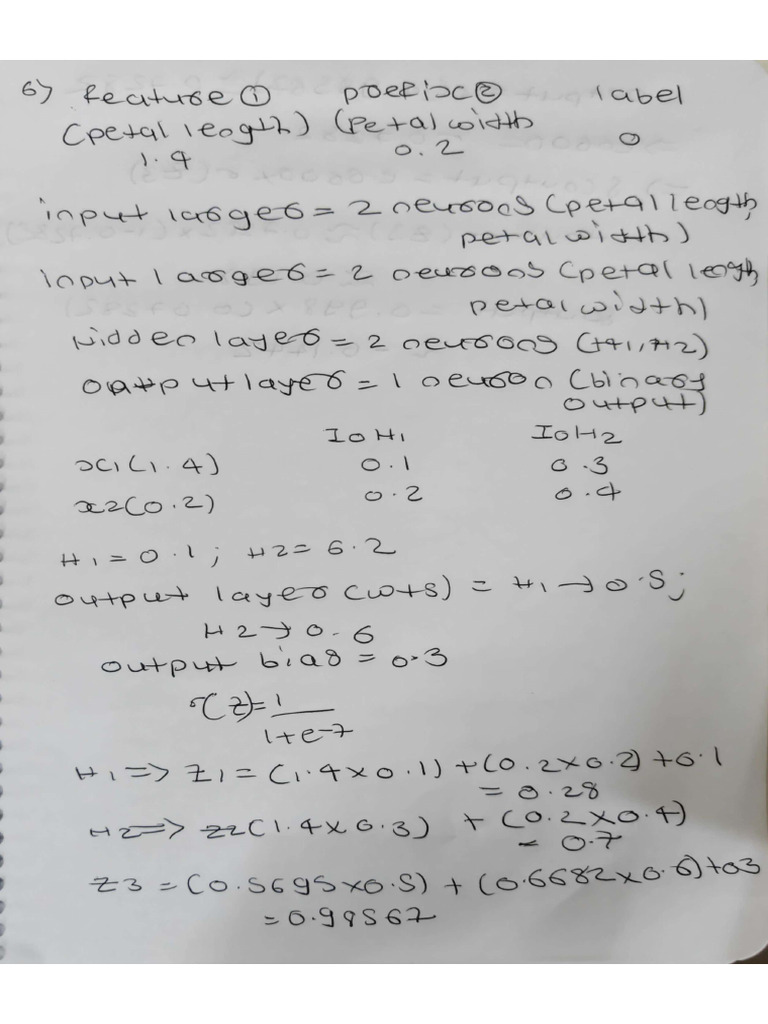 6) Feature ① poefix ② label
(petal length) (Petal width
1.4 0.2 0
input larger = 2 neurons (petal length,
petal width)
input larger = 2 neurons (petal length,
petal width)
Hidden layer = 2 neurons (H1, H2)
Output layer = 1 neuron (binary
output)
IoH1 IoH2
x1(1.4) 0.1 0.3
x2(0.2) 0.2 0.4
H1 = 0.1; H2 = 0.2
output layer (wts) = H1 → 0.5;
H2 → 0.6
output bias = 0.3
σ(z) = 1/1+e-z
H1 => Z1 = (1.4 x 0.1) + (0.2 x 0.2) + 0.1
= 0.28
H2 => Z2 (1.4 x 0.3) + (0.2 x 0.4)
= 0.7
Z3 = (0.5695 x 0.5) + (0.6682 x 0.6) + 03
= 0.99567